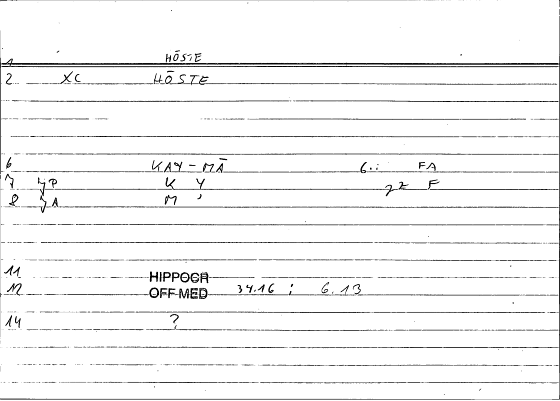 1 HŌSTE
2 XC HŌSTE
6 KAY-MĀ 6.: FA
7 ʒP K Y zz F
8 ʒA M '
11 HIPPOCR
12 OFF MED 34.16 ; 6.13
14 ?